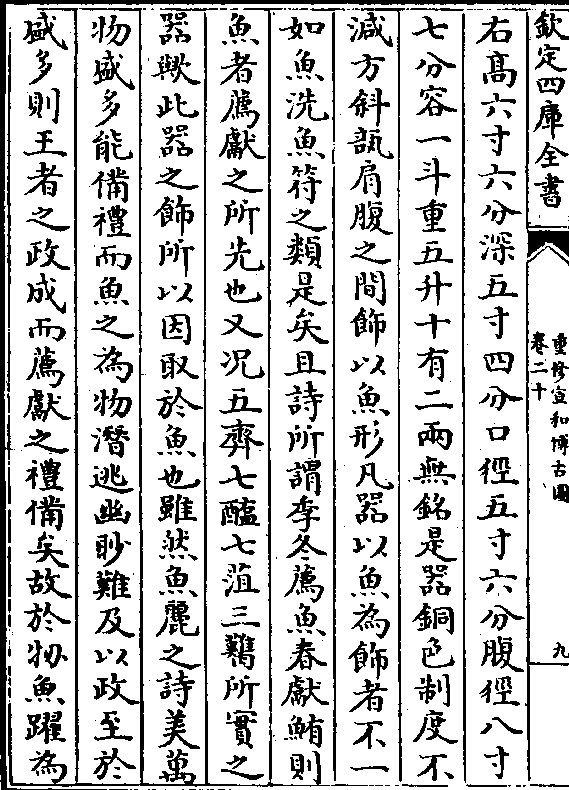 欽定四庫全書
重修宣和博古圖
卷二十
九
右髙六寸六分深五寸四分口徑五寸六分腹徑八寸
七分容一斗重五升十有二兩無銘是器銅色制度不
減方斜瓿肩腹之間飾以魚形凡器以魚為飾者不一
如魚洗魚符之類是矣且詩所謂季冬薦魚春獻鮪則
魚者薦獻之所先也又况五齊七醢七菹三鷄所實之
器歟此器之飾所以因取於魚也雖然魚麗之詩美萬
物盛多能備禮而魚之為物潛逃幽眇難及以政至於
盛多則王者之政成而薦獻之禮備矣故於牣魚躍為